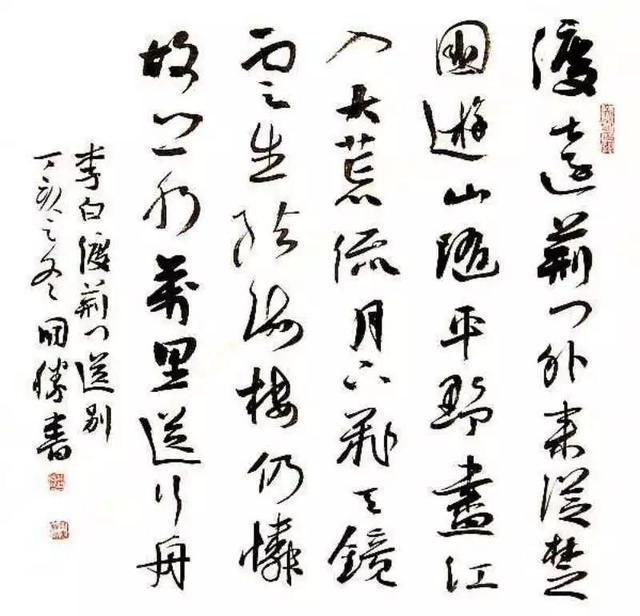 渡遠荊門外来從楚
國遊山隨平野盡江
入大荒流月下飛天鏡
雲生結海樓仍憐
故鄉水萬里送行舟
李白渡荊門送別
丁亥之冬國勝書